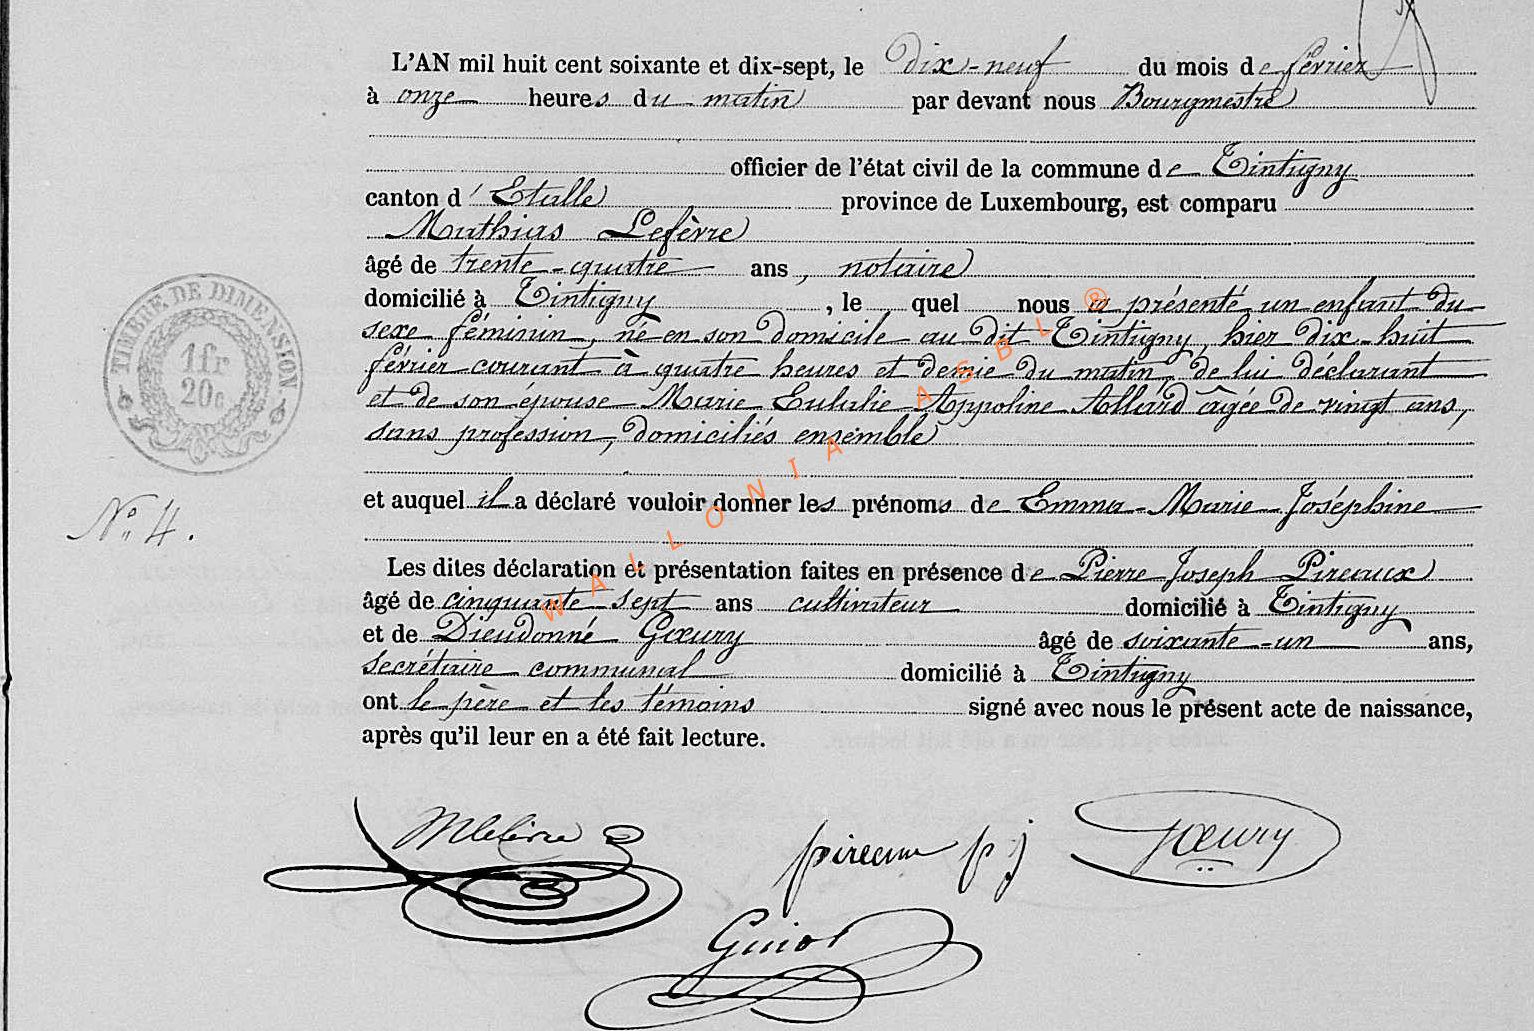 L'AN mil huit cent soixante et dix-sept, le dix-neuf du mois de février
à onze heures du matin par devant nous Bourgmestre
officier de l'état civil de la commune de Tintigny
canton d'Etalle province de Luxembourg, est comparu
Mathias Lefèvre
âgé de trente-quatre ans, notaire
domicilié à Tintigny, le quel nous a présenté un enfant du
sexe féminin, né en son domicile au dit Tintigny, hier dix-huit
février courant à quatre heures et demie du matin, de lui déclarant
et de son épouse Marie Eulalie Appoline Allard âgée de vingt ans,
sans profession, domiciliés ensemble
et auquel il a déclaré vouloir donner les prénoms de Emma-Marie-Joséphine
Les dites déclaration et présentation faites en présence de Pierre Joseph Pireaux
âgé de cinquante-sept ans cultivateur domicilié à Tintigny
et de Dieudonné Gœury âgé de soixante-un ans,
secrétaire communal domicilié à Tintigny
ont le père et les témoins signé avec nous le présent acte de naissance,
après qu'il leur en a été fait lecture.
TIMBRE DE DIMENSION
1fr
20c
N° 4.
WALLONIA ASBL ®
MLefèvre
pireaux p j
Gœury